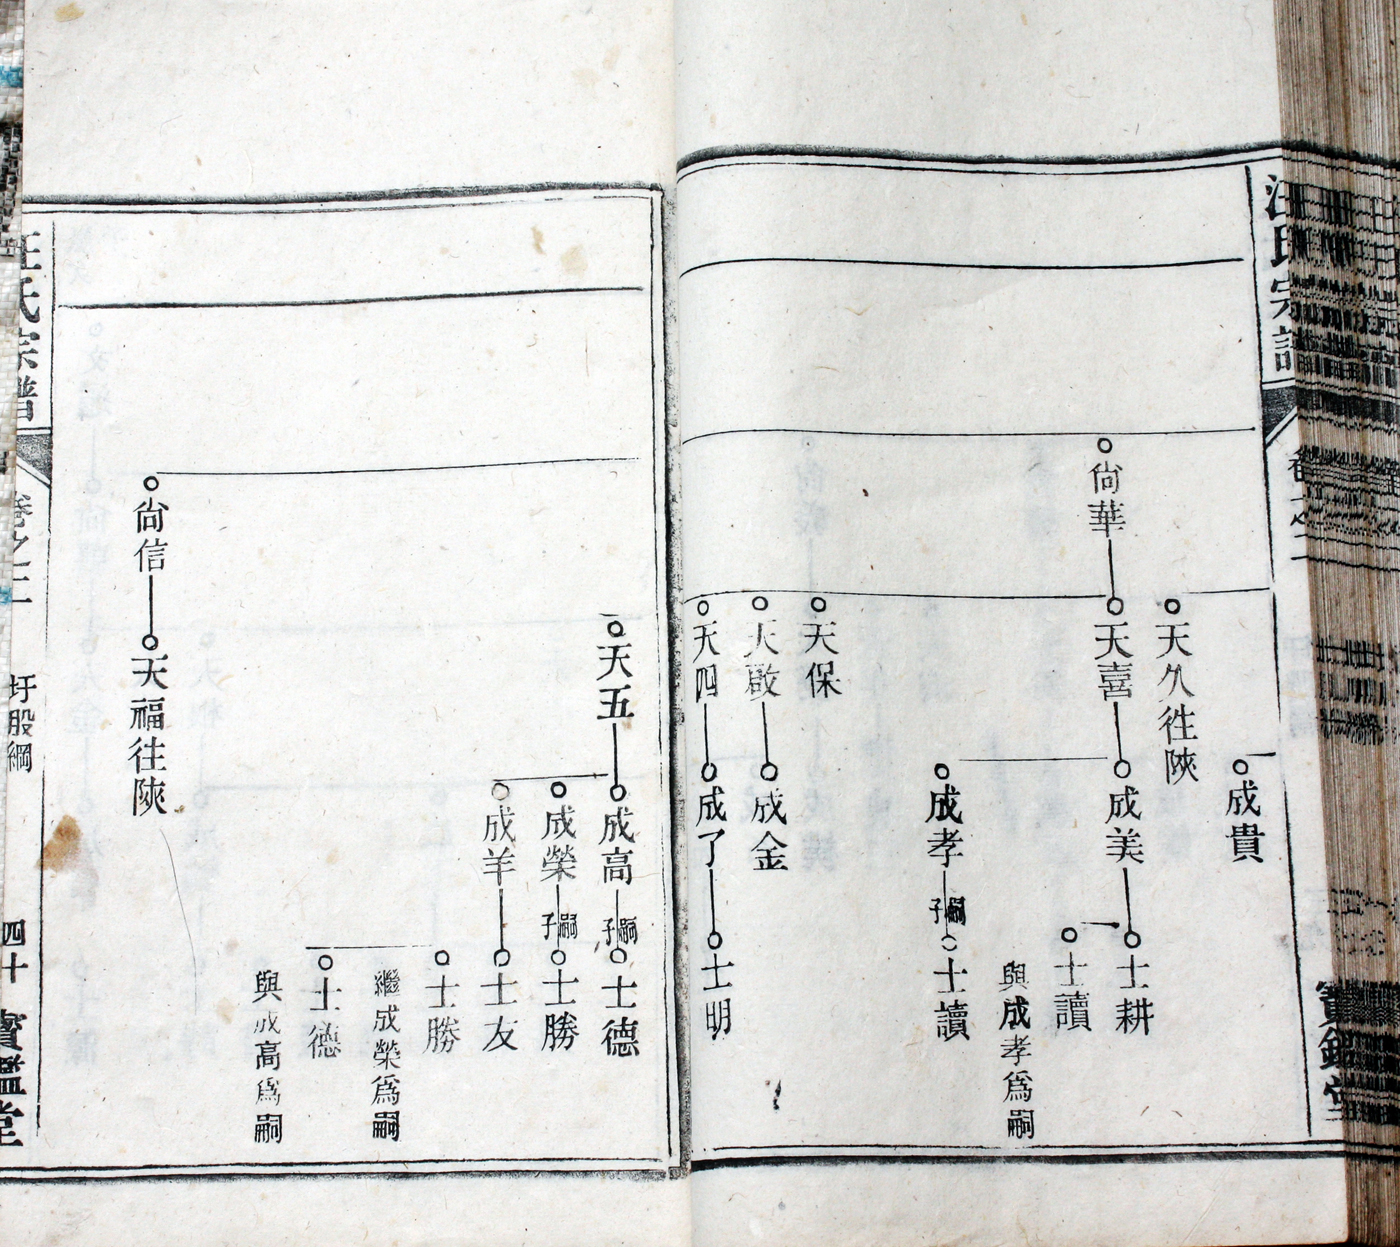 汪氏宗譜
卷之二
寶鑑堂
成貴
天久徃陝
尙華
天喜
成美
士耕
士讀
與成孝爲嗣
成孝
嗣子
士讀
天保
天啟
成金
天四
成了
士明
天五
成高
嗣子
士德
成榮
嗣子
士勝
成羊
士友
士勝
繼成榮爲嗣
士德
與成高爲嗣
尙信
天福徃陝
汪氏宗譜
卷之二
圩股綱
四十
寶鑑堂